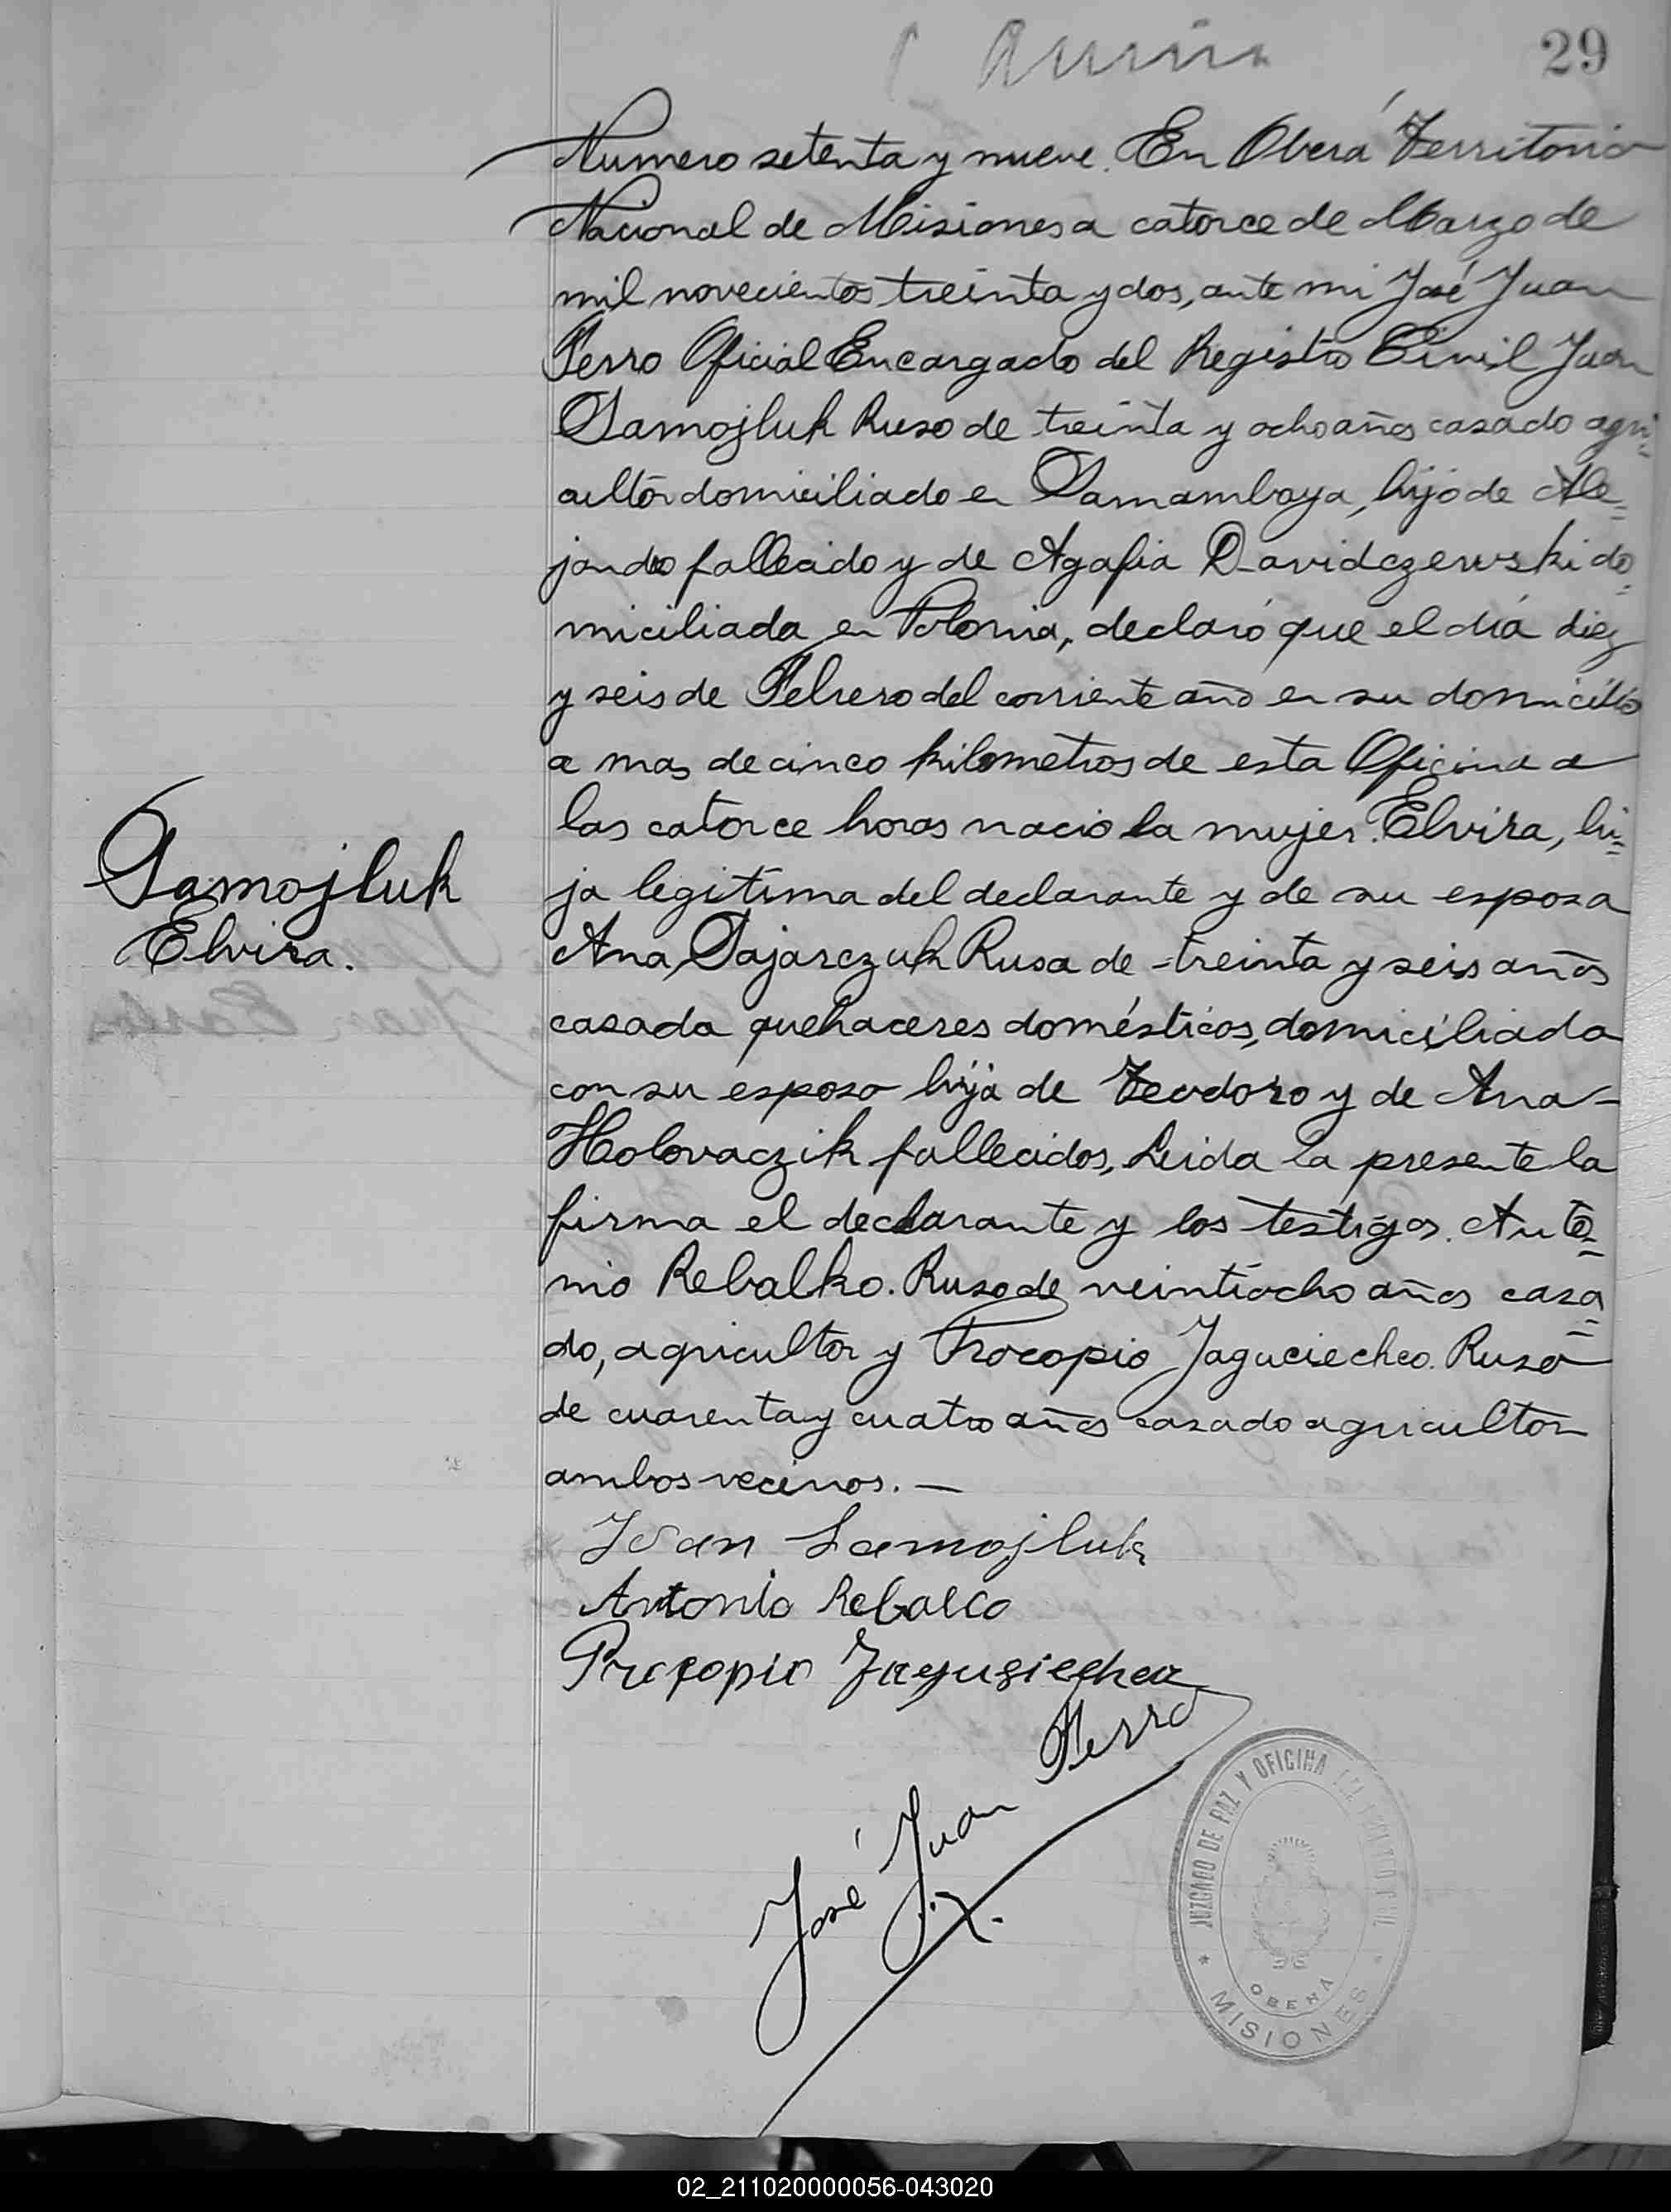 29
Numero setenta y nueve. En Oberá Territorio
Nacional de Misiones a catorce de Marzo de
mil novecientos treinta y dos, ante mi José Juan
Ferro Oficial Encargado del Registro Civil Juan
Samojluk Ruso de treinta y ocho años casado agri=
cultor domiciliado en Samambaya, hijo de Ale=
jandro fallecido y de Agafia Davidczewski do=
miciliada en Polonia, declaró que el día diez
y seis de Febrero del corriente año en su domicilio
a mas de cinco kilometros de esta Oficina a
las catorce horas nacio la mujer. Elvira, hi=
Samojluk
Elvira.
ja legitima del declarante y de su esposa
Ana Sajarczuk Rusa de treinta y seis años
casada quehaceres domésticos, domiciliada
con su esposo hija de Teodoro y de Ana-
Holovaczik fallecidos, Leida la presente la
firma el declarante y los testigos. Anto=
nio Rebalko. Ruso de veintiocho años casa=
do, agricultor y Procopio Jaguciecheo. Ruso
de cuarenta y cuatro años casado agricultor
ambos vecinos. —
Ivan Samojluk
Antonio Rebalco
Procopio
José Juan Ferro
JUZGADO DE PAZ Y OFICINA DEL REGISTRO CIVIL
OBERA
MISIONES
02_211020000056-043020